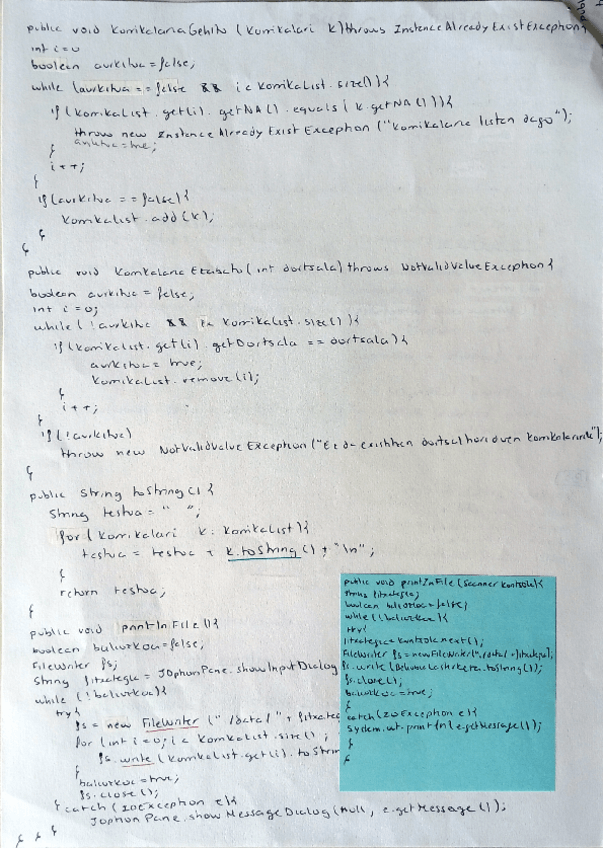 public void KorrikalariaGehitu (Korrikalari k) throws InstanceAlreadyExistException{
int i=0
boolean aurkitua = false;
while (aurkitua == false && i < KorrikaList.size()){
if (KorrikaList.get(i).getNA().equals(k.getNA())){
throw new InstanceAlreadyExistException ("Korrikalaria listan dago");
aurkitua = true;
}
i++;
}
if (aurkitua == false){
KorrikaList.add(k);
}
}
public void KorrikalariaEzabatu (int dortsala) throws NotValidValueException{
boolean aurkitua = false;
int i=0;
while (!aurkitua && i< KorrikaList.size()){
if (KorrikaList.get(i).getDortsala == dortsala){
aurkitua = true;
KorrikaList.remove(i);
}
i++;
}
if (!aurkitua)
throw new NotValidValueException ("Ez da existitzen dortsal hori duen korrikalaririk");
}
public String toString(){
String testua = " ";
for (Korrikalari k: KorrikaList){
testua = testua + k.toString() + "\n";
}
return testua;
}
public void printInFile(){
boolean baliozkoa = false;
FileWriter fs;
String fitxategia = JOptionPane.showInputDialog
while (!baliozkoa){
try{
fs = new FileWriter ("./data/" + fitxateg
for (int i=0; i < KorrikaList.size();
fs.write (KorrikaList.get(i).toStrin
}
baliozkoa = true;
fs.close();
} catch (IOException e){
JOptionPane.showMessageDialog (null, e.getMessage());
} } }
public void printInFile (Scanner kontsola){
String fitxategia;
boolean baliozkoa = false;
while (!baliozkoa){
try{
fitxategia = kontsola.next();
FileWriter fs = new FileWriter("./data/"+fitxategia);
toString());
fs.close();
baliozkoa = true;
}
catch (IOException e){
System.out.println (e.getMessage());
}
}